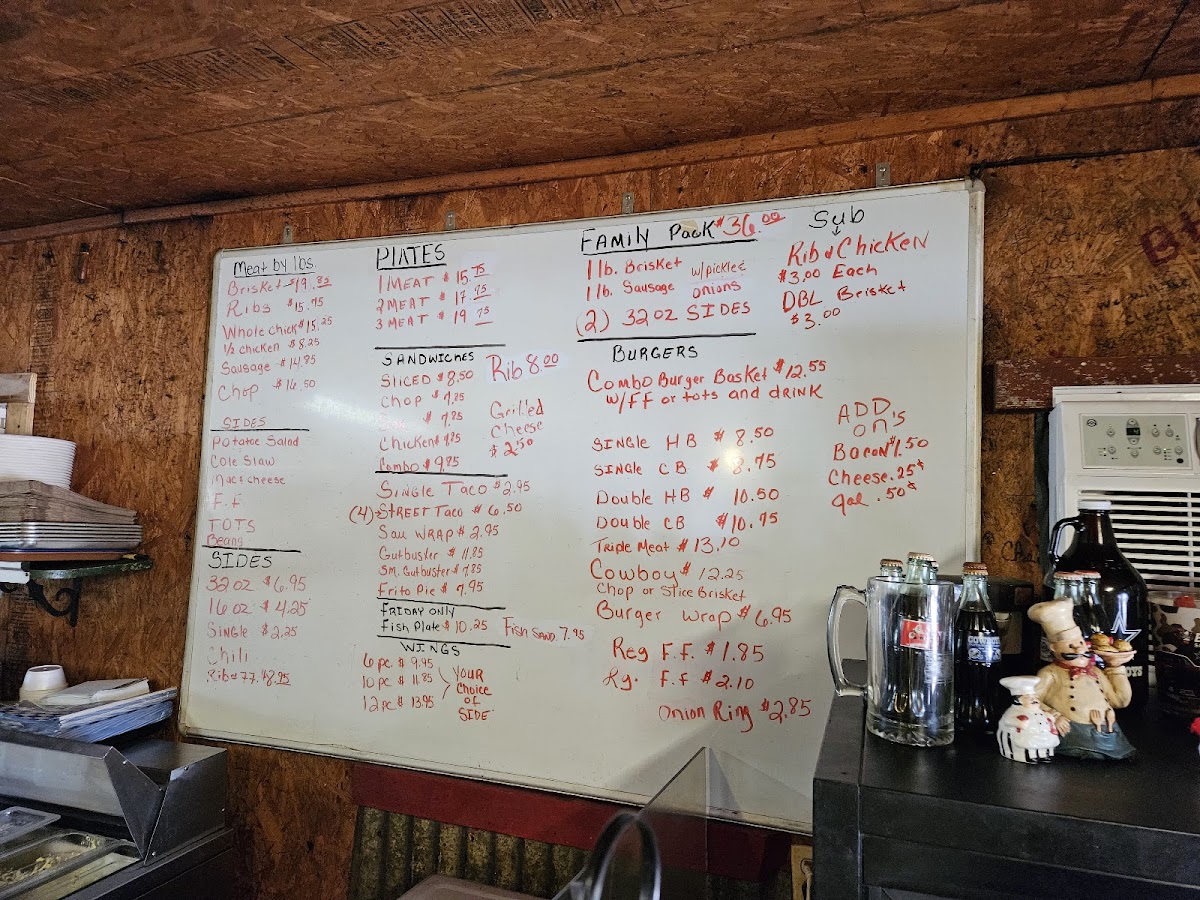 Meat by lbs.
Brisket $19.85
Ribs $15.75
Whole Chick $15.25
1/2 chicken $8.25
Sausage $14.85
Chop $16.50
SIDES
Potatoe Salad
Cole Slaw
Mac & cheese
F.f
TOTS
Beans
SIDES
32 oz $6.95
16 oz $4.25
Single $2.25
Chili
PLATES
1 MEAT $15.75
2 MEAT $17.75
3 MEAT $19.75
SANDWICHES
Rib 8.00
SLICED $8.50
Chop $7.25
$7.25
Chicken $7.25
Combo $9.25
Grilled
Cheese
$2.50
Single Taco $2.95
(4) Street Taco $6.50
Sau Wrap $2.95
Gutbuster $11.85
Sm. Gutbuster $7.85
Frito Pie $7.95
FRIDAY ONLY
Fish Plate $10.25
Fish Sand. 7.95
WINGS
6 pc. $9.45
10 pc $11.85
12 pc $13.95
YOUR
Choice
of
SIDE
FAMILY Pack $36.00
1 lb. Brisket
1 lb. Sausage
w/pickle &
onions
(2) 32 oz SIDES
Sub
Rib & Chicken
$3.00 Each
DBL Brisket
$3.00
BURGERS
Combo Burger Basket $12.55
w/FF or tots and drink
SINGLE HB $8.50
SINGLE CB $8.75
Double HB $10.50
Double CB $10.75
Triple Meat $13.10
Cowboy $12.25
Chop or Slice Brisket
Burger Wrap $6.95
Reg F.F. $1.85
Lg. F.f $2.10
Onion Ring $2.85
ADD
ON'S
Bacon $1.50
Cheese .25¢
Jal .50¢